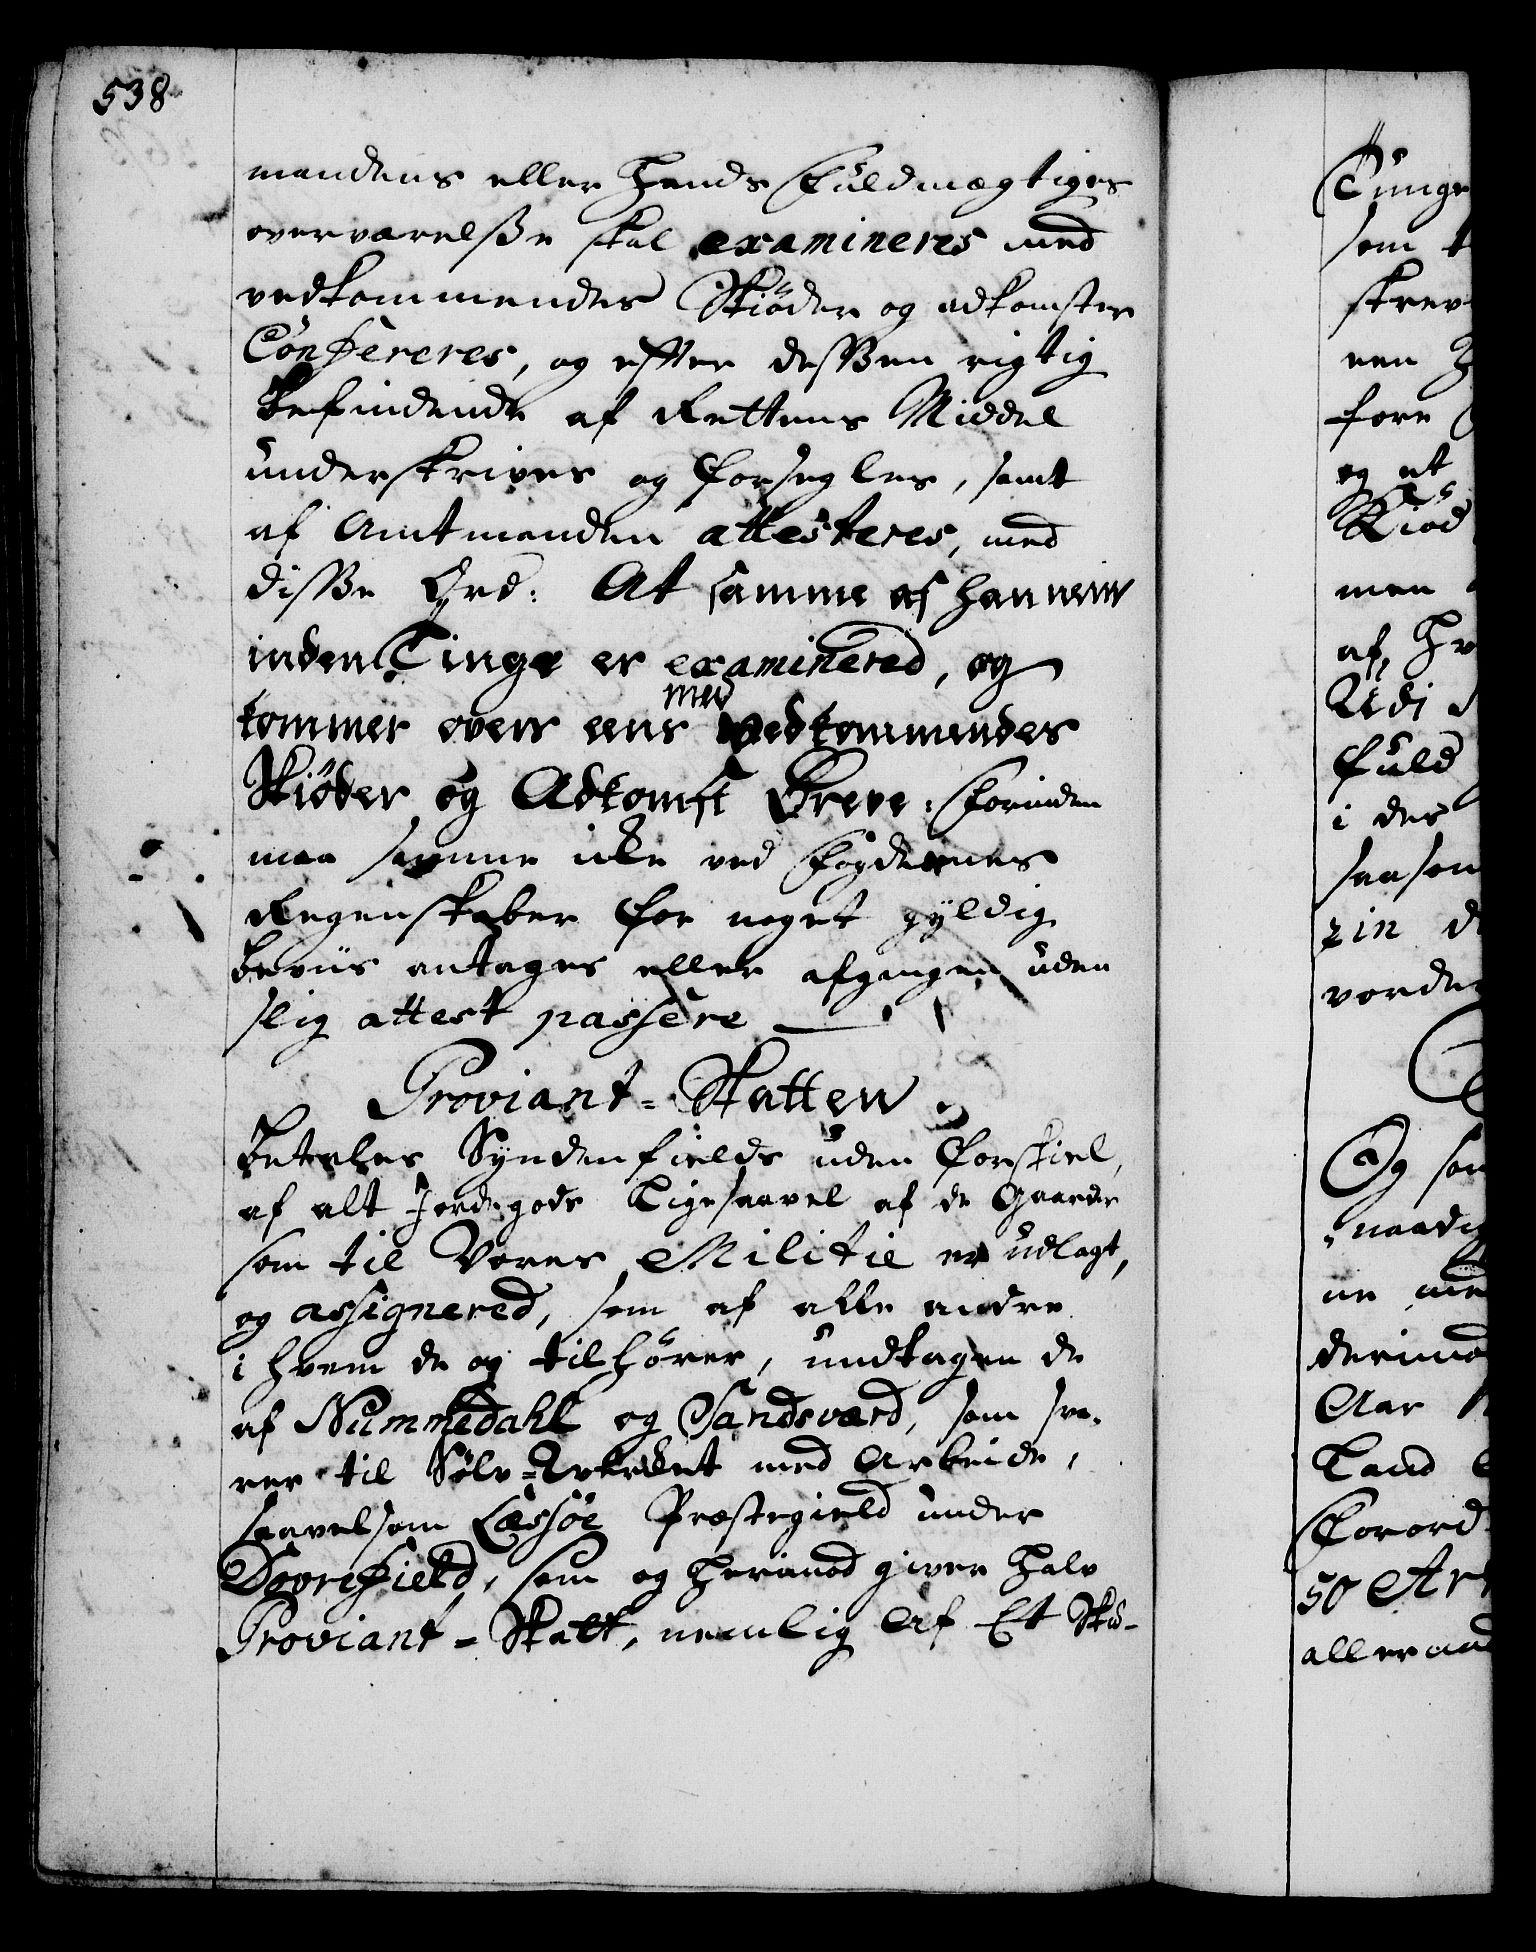 538
mandens eller hands Fuldmægtiges
overværelsße skal examineres med
vedkommendes Skiøder og adkomster
Confereres, og efter desßen rigtig
Befindende af Rettens Middel
underskrives og forsegles, samt
af Amtmanden attesteres, med
disße Ord: At samme af hannem
inden Tinge er examinered, og
kommer overs eens med vedkommendes
Skiøder og Adkomst Breve: Forinden
maa samme icke ved Fogdernes
Regenskaber for noget gyldig
beviis antages eller afgangen uden
slig attest passere
Proviant-Skatten
Betahles Syndenfields uden forskiel,
af alt Jordegods Ligesaavel af de Gaarde
som til Vores Militie er udlagt,
og assignered, som af alle andre
i hvem de og tilhører, undtagen de
af Nummedahl og Sandsværd, som sva-
rer til Sølv-Verket med Arbeide,
saavelsom Læssøe Præstegield under
Dovrefield, som og herimod giver halv
Proviant-Skatt, nemlig Af Et Skii-
Tinge
som t
skrev
een
fore
og at
Skiød
men
af, Hv
Udi
fuld
i des
saasom
zin d
vorde
Og som
naadig
ne med
derimod
Aar
Land
Forord
50 Ar
allernaad